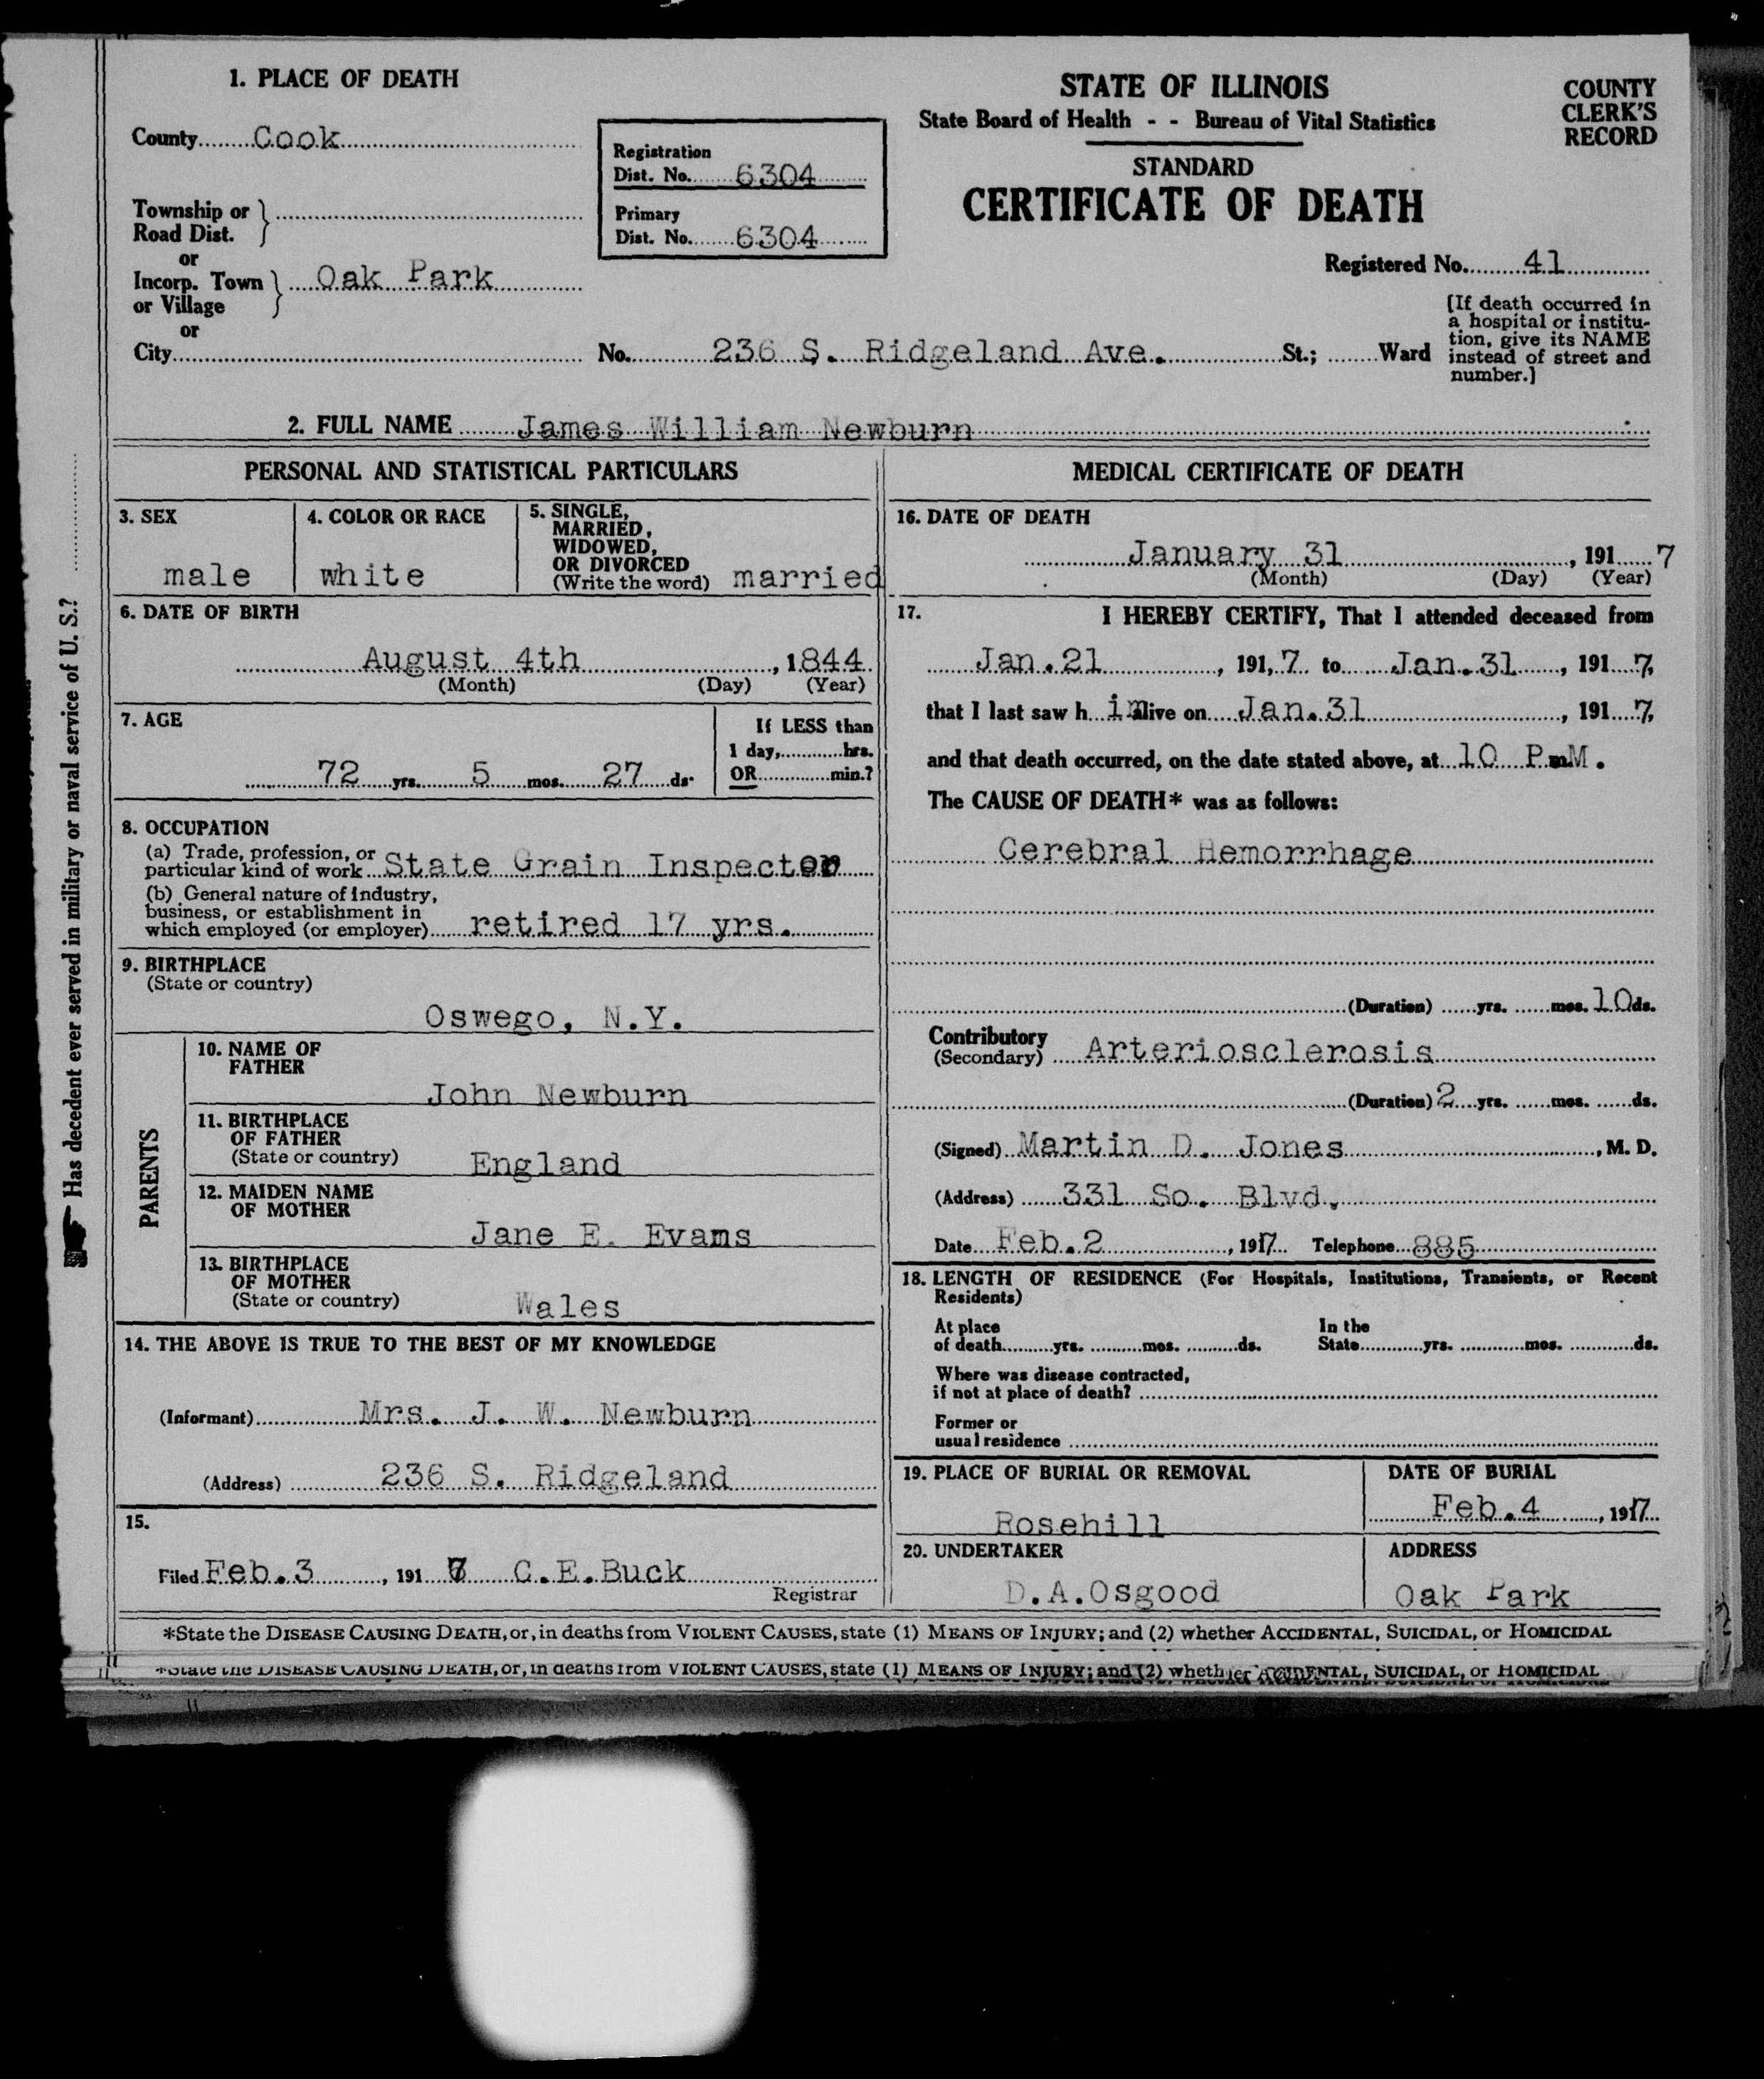 1. PLACE OF DEATH
County Cook
Township or Road Dist.
or
Incorp. Town or Village Oak Park
or
City No. 236 S. Ridgeland Ave. St.; Ward
Registration Dist. No. 6304
Primary Dist. No. 6304
STATE OF ILLINOIS
State Board of Health - - Bureau of Vital Statistics
STANDARD
CERTIFICATE OF DEATH
COUNTY
CLERK'S
RECORD
Registered No. 41
[If death occurred in
a hospital or institu-
tion, give its NAME
instead of street and
number.]
2. FULL NAME James William Newburn
PERSONAL AND STATISTICAL PARTICULARS
3. SEX
male
4. COLOR OR RACE
white
5. SINGLE,
MARRIED,
WIDOWED,
OR DIVORCED
(Write the word) married
6. DATE OF BIRTH
August 4th, 1844
(Month) (Day) (Year)
7. AGE
72 yrs. 5 mos. 27 ds.
If LESS than
1 day, hrs.
OR min.?
8. OCCUPATION
(a) Trade, profession, or
particular kind of work State Grain Inspector
(b) General nature of industry,
business, or establishment in
which employed (or employer) retired 17 yrs.
9. BIRTHPLACE
(State or country)
Oswego, N.Y.
PARENTS
10. NAME OF
FATHER
John Newburn
11. BIRTHPLACE
OF FATHER
(State or country) England
12. MAIDEN NAME
OF MOTHER
Jane E. Evans
13. BIRTHPLACE
OF MOTHER
(State or country) Wales
14. THE ABOVE IS TRUE TO THE BEST OF MY KNOWLEDGE
(Informant) Mrs. J. W. Newburn
(Address) 236 S. Ridgeland
15.
Filed Feb. 3, 191 7 C.E.Buck
Registrar
MEDICAL CERTIFICATE OF DEATH
16. DATE OF DEATH
January 31, 191 7
(Month) (Day) (Year)
17. I HEREBY CERTIFY, That I attended deceased from
Jan. 21, 191, 7 to Jan. 31, 191 7,
that I last saw h im alive on Jan. 31, 191 7,
and that death occurred, on the date stated above, at 10 P.M.
The CAUSE OF DEATH* was as follows:
Cerebral Hemorrhage
(Duration) yrs. mos. 10 ds.
Contributory
(Secondary) Arteriosclerosis
(Duration) 2 yrs. mos. ds.
(Signed) Martin D. Jones, M. D.
(Address) 331 So. Blvd.
Date Feb. 2, 1917 Telephone 885
18. LENGTH OF RESIDENCE (For Hospitals, Institutions, Transients, or Recent
Residents)
At place
of death yrs. mos. ds.
In the
State yrs. mos. ds.
Where was disease contracted,
if not at place of death?
Former or
usual residence
19. PLACE OF BURIAL OR REMOVAL
Rosehill
DATE OF BURIAL
Feb. 4, 1917
20. UNDERTAKER
D.A.Osgood
ADDRESS
Oak Park
*State the DISEASE CAUSING DEATH, or, in deaths from VIOLENT CAUSES, state (1) MEANS OF INJURY; and (2) whether ACCIDENTAL, SUICIDAL, or HOMICIDAL
*State the DISEASE CAUSING DEATH, or, in deaths from VIOLENT CAUSES, state (1) MEANS OF INJURY; and (2) whether ACCIDENTAL, SUICIDAL, or HOMICIDAL
Has decedent ever served in military or naval service of U. S.?